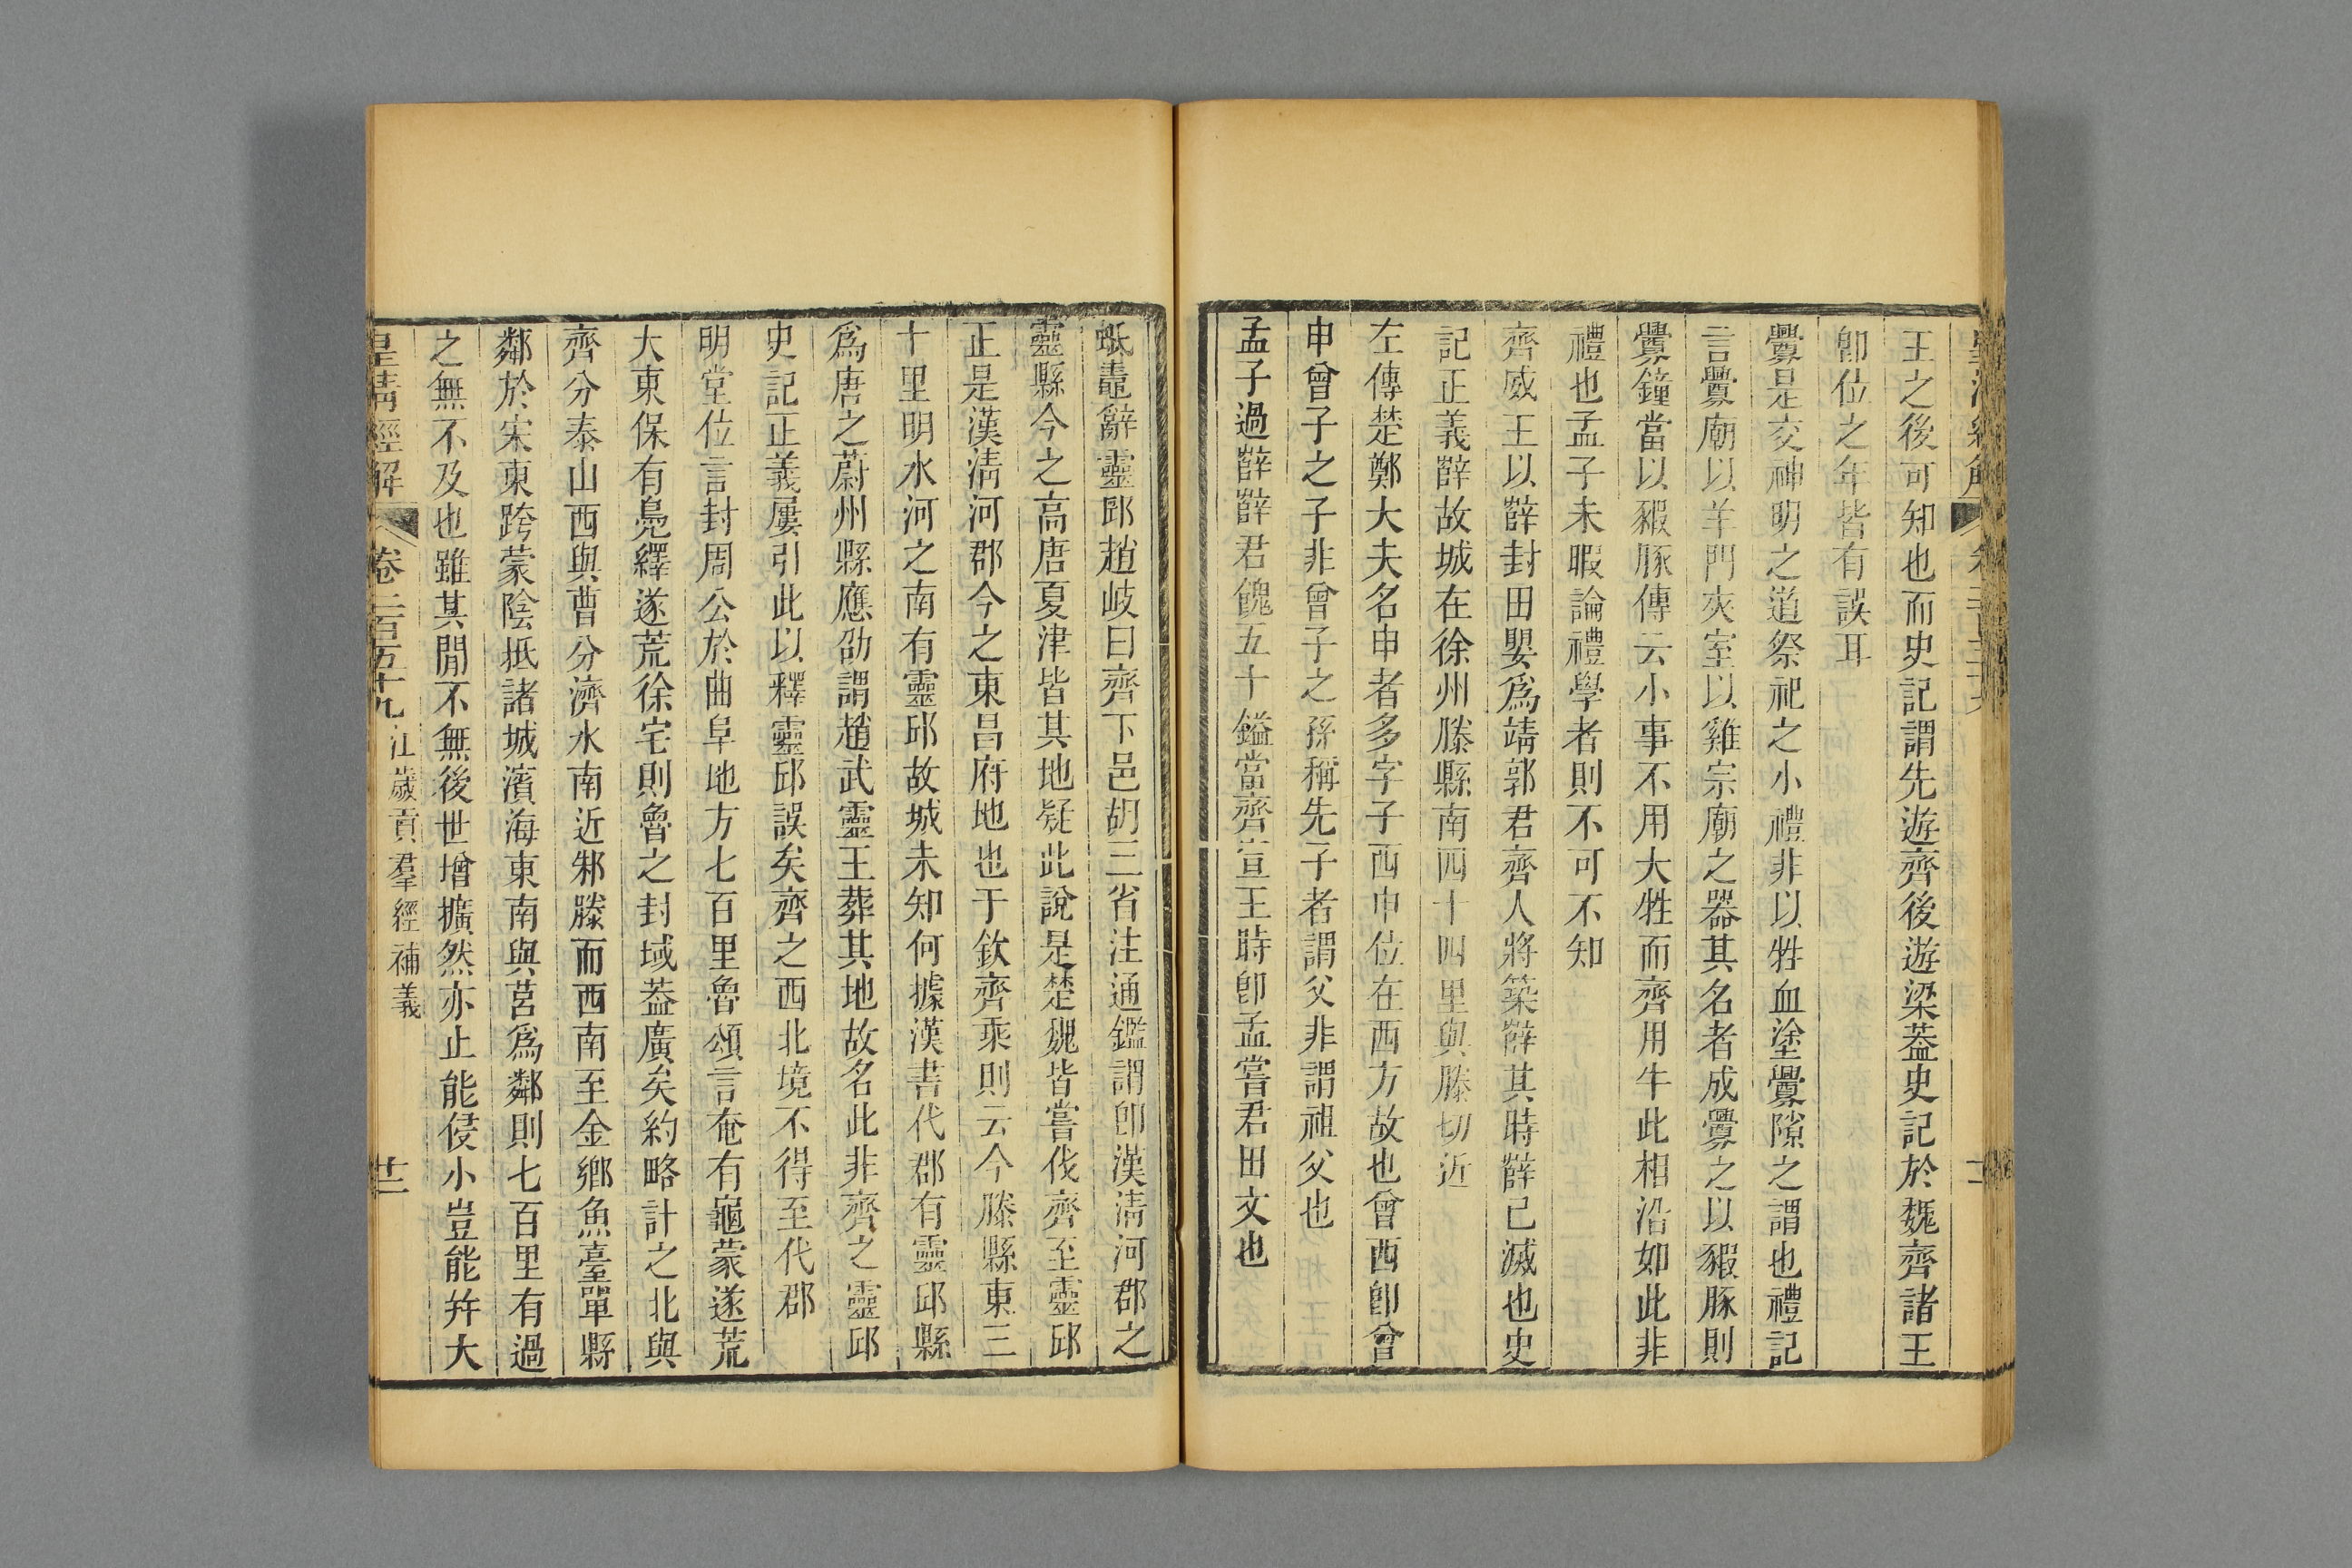 王之後可知也而史記謂先遊齊後遊梁葢史記於魏齊諸王
卽位之年皆有誤耳
釁是交神明之道祭祀之小禮非以牲血塗釁隙之謂也禮記
言釁廟以羊門夾室以雞宗廟之器其名者成釁之以豭豚則
釁鐘當以豭豚傳云小事不用大牲而齊用牛此相沿如此非
禮也孟子未暇論禮學者則不可不知
齊威王以薛封田嬰爲靖郭君齊人將築薛其時薛已滅也史
記正義薛故城在徐州滕縣南四十四里與滕切近
左傳楚鄭大夫名申者多字子西申位在西方故也曾西卽曾
申曾子之子非曾子之孫稱先子者謂父非謂祖父也
孟子過薛薛君餽五十鎰當齊宣王時卽孟嘗君田文也
蚳鼃辭靈邱趙岐曰齊下邑胡三省注通鑑謂卽漢淸河郡之
靈縣今之高唐夏津皆其地疑此說是楚魏皆嘗伐齊至靈邱
正是漢淸河郡今之東昌府地也于欽齊乘則云今滕縣東三
十里明水河之南有靈邱故城未知何據漢書代郡有靈邱縣
爲唐之蔚州縣應劭謂趙武靈王葬其地故名此非齊之靈邱
史記正義屢引此以釋靈邱誤矣齊之西北境不得至代郡
明堂位言封周公於曲阜地方七百里魯頌言奄有龜蒙遂荒
大東保有鳧繹遂荒徐宅則魯之封域葢廣矣約略計之北與
齊分泰山西與曹分濟水南近邾滕而西南至金鄉魚臺單縣
鄰於宋東跨蒙陰抵諸城濱海東南與莒爲鄰則七百里有過
之無不及也雖其閒不無後世增擴然亦止能侵小豈能幷大
皇淸經解 卷二百五十九 江歲貢羣經補義 廿三